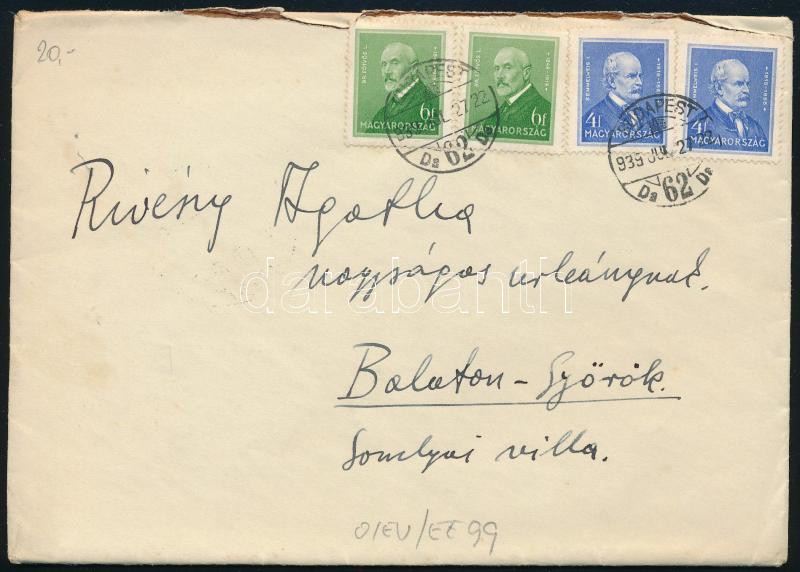 20,-
DR. EÖTVÖS L.
6f
MAGYARORSZÁG
6f
MAGYARORSZÁG
SEMMELWEIS I.
1818-1865
4f
MAGYARORSZÁG
1818-1865
4f
MAGYARORSZÁG
BUDAPEST
939 JUL. 27. 22
Da 62 Da
BUDAPEST
939 JUL. 27
Da 62 Da
Rivény Agatha
nagyságos urleánynak.
Balaton-Györök.
Somlyai villa.
darabanth